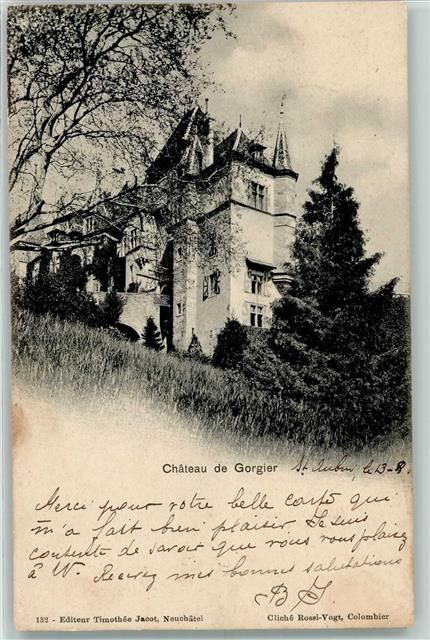 Château de Gorgier St Aubin, le 13-8.
Merci pour votre belle carte qui
m'a fait bien plaisir Je suis
contente de savoir que vous vous plaisez
à W. Recevez mes bonnes salutations
B J
132 - Editeur Timothée Jacot, Neuchâtel
Cliché Rossi-Vogt, Colombier